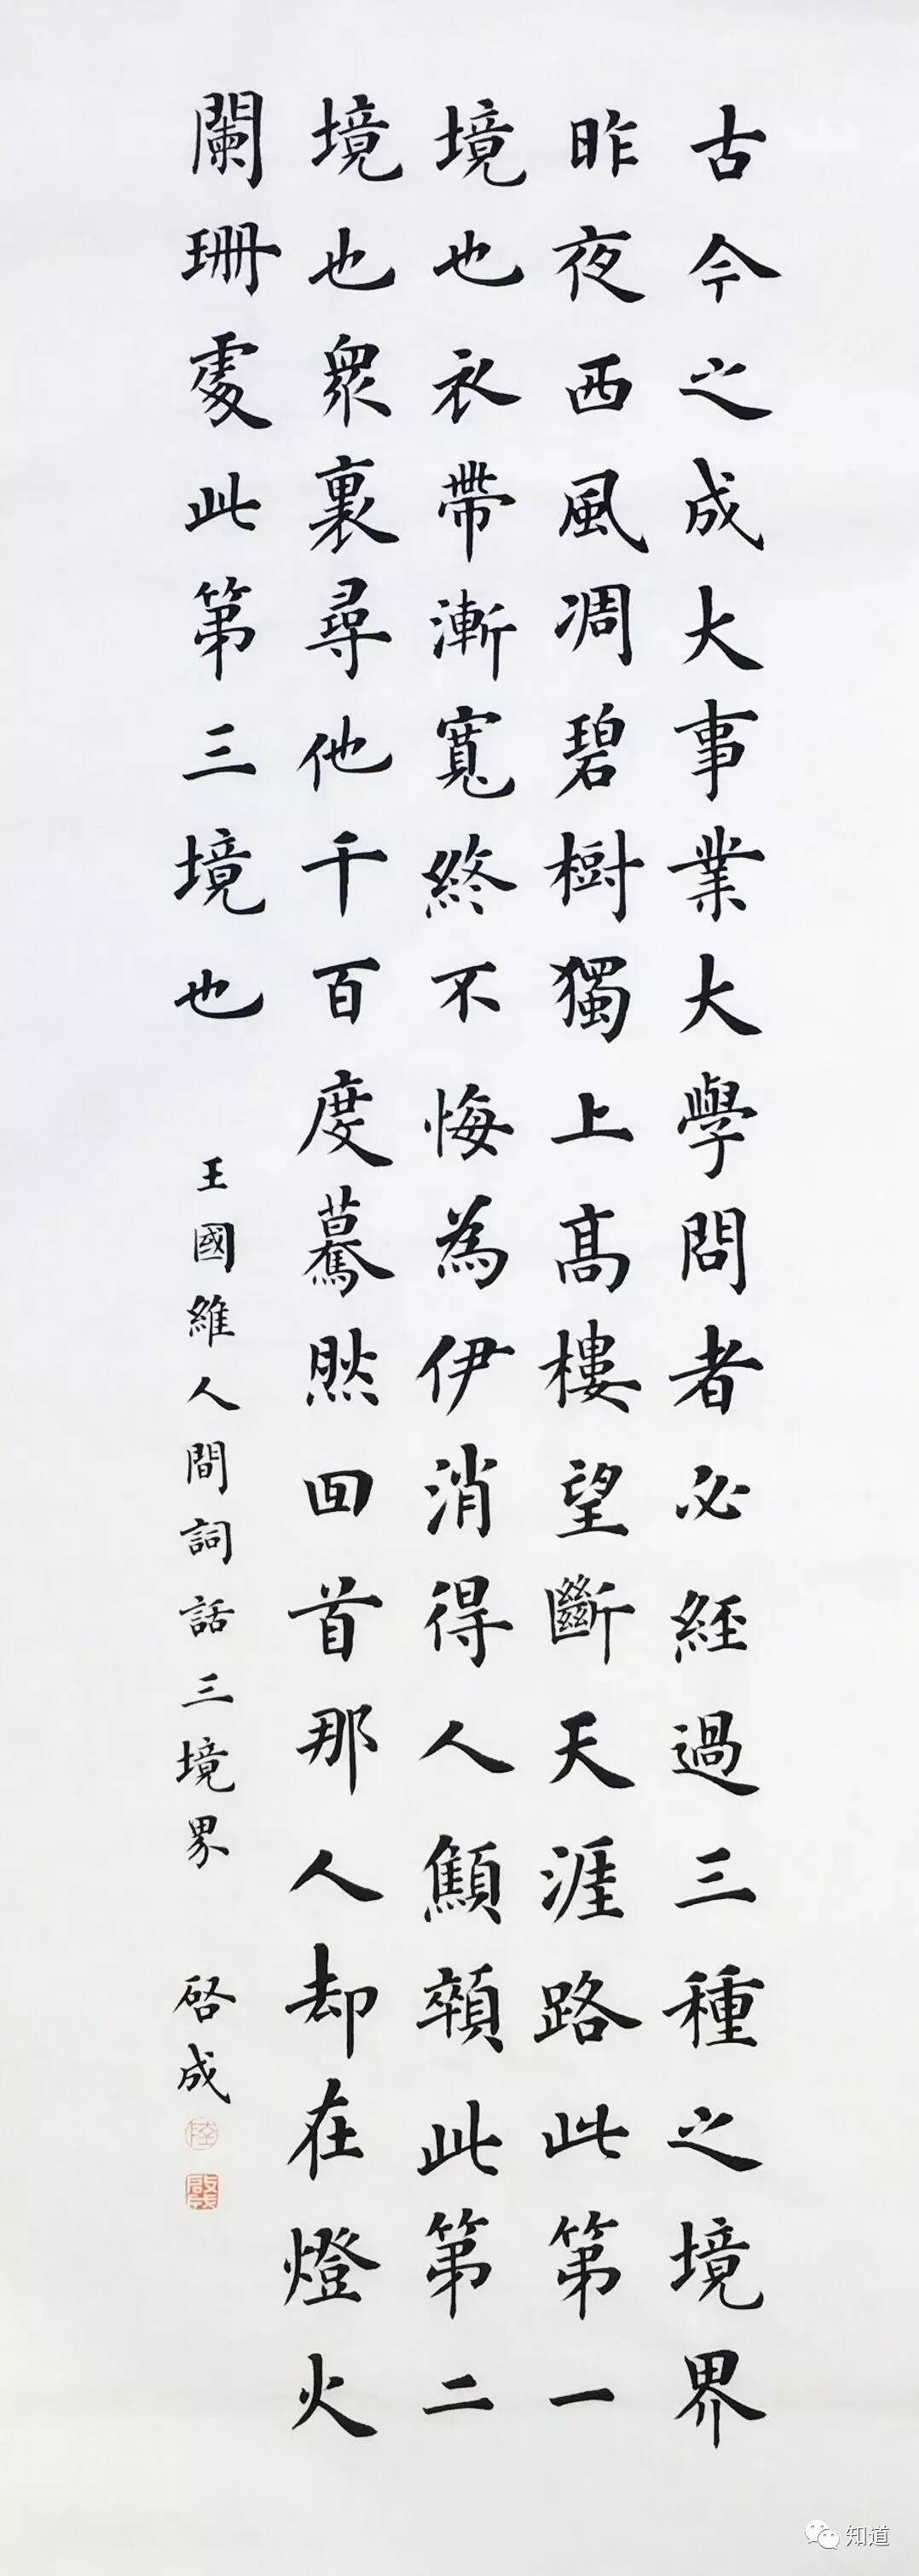 古今之成大事業大學問者必經過三種之境界
昨夜西風凋碧樹獨上髙樓望斷天涯路此第一
境也衣帶漸寬終不悔為伊消得人顦顇此第二
境也衆裏尋他千百度驀然回首那人却在燈火
闌珊處此第三境也
王國維人間詞話三境界 啓成
陸
知道